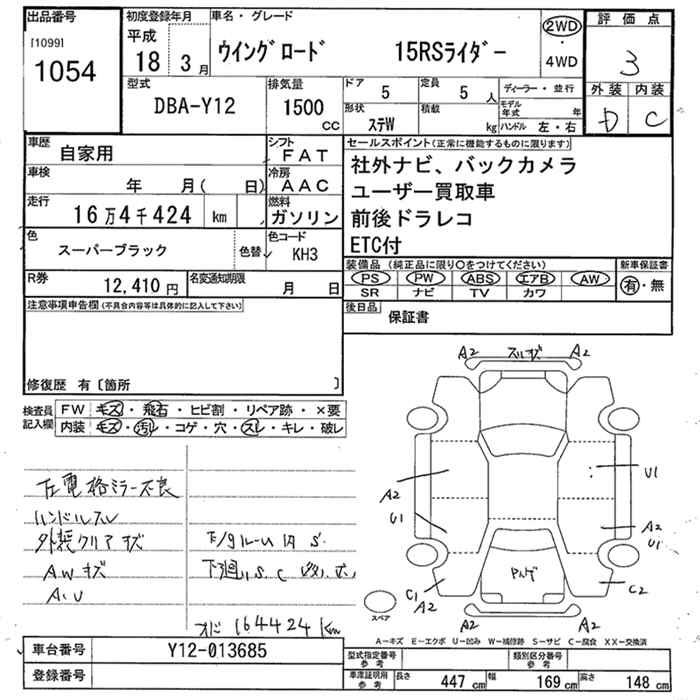 出品番号
[1099]
1054
初度登録年月
平成
18 3月
車名・グレード
ウイングロード 15RSライダー
2WD
・
4WD
評価点
3
外装 内装
D C
型式
DBA-Y12
排気量
1500
CC
ドア
5
定員
5 人
形状
ステW
積載
kg
ディーラー・並行
モデル年式 年
ハンドル 左・右
車歴
自家用
シフト
FAT
車検
年 月( 日)
冷房
AAC
走行
16万4千424 km
燃料
ガソリン
色
スーパーブラック
色替
色コード
KH3
R券
12,410円
名変通知期限
月 日
セールスポイント(正常に機能するものに限ります)
社外ナビ、バックカメラ
ユーザー買取車
前後ドラレコ
ETC付
装備品(純正品に限り〇をつけてください)
PS PW ABS エアB AW
SR ナビ TV カワ
新車保証書
有・無
後日品
保証書
注意事項申告欄(不具合内容等は具体的に記入して下さい)
修復歴 有〔箇所 〕
検査員
記入欄
FW キズ・飛石・ヒビ割・リペア跡・×要
内装 キズ・汚レ・コゲ・穴・スレ・キレ・破レ
左電格ミラー不良
ハンドルスレ
外装クリアキズ
AWキズ
A.U
下廻りS.C
164424km
A2
A2
A2
U1
U1
A2
U1
C1
A2
C2
A2
A2
スペア
A-キズ E-エクボ U-凹み W-補修跡 S-サビ C-腐食 XX-交換済
車台番号
Y12-013685
登録番号
型式指定番号
参考
類別区分番号
参考
車庫証明用
参考
長さ 447 cm 幅 169 cm 高さ 148 cm